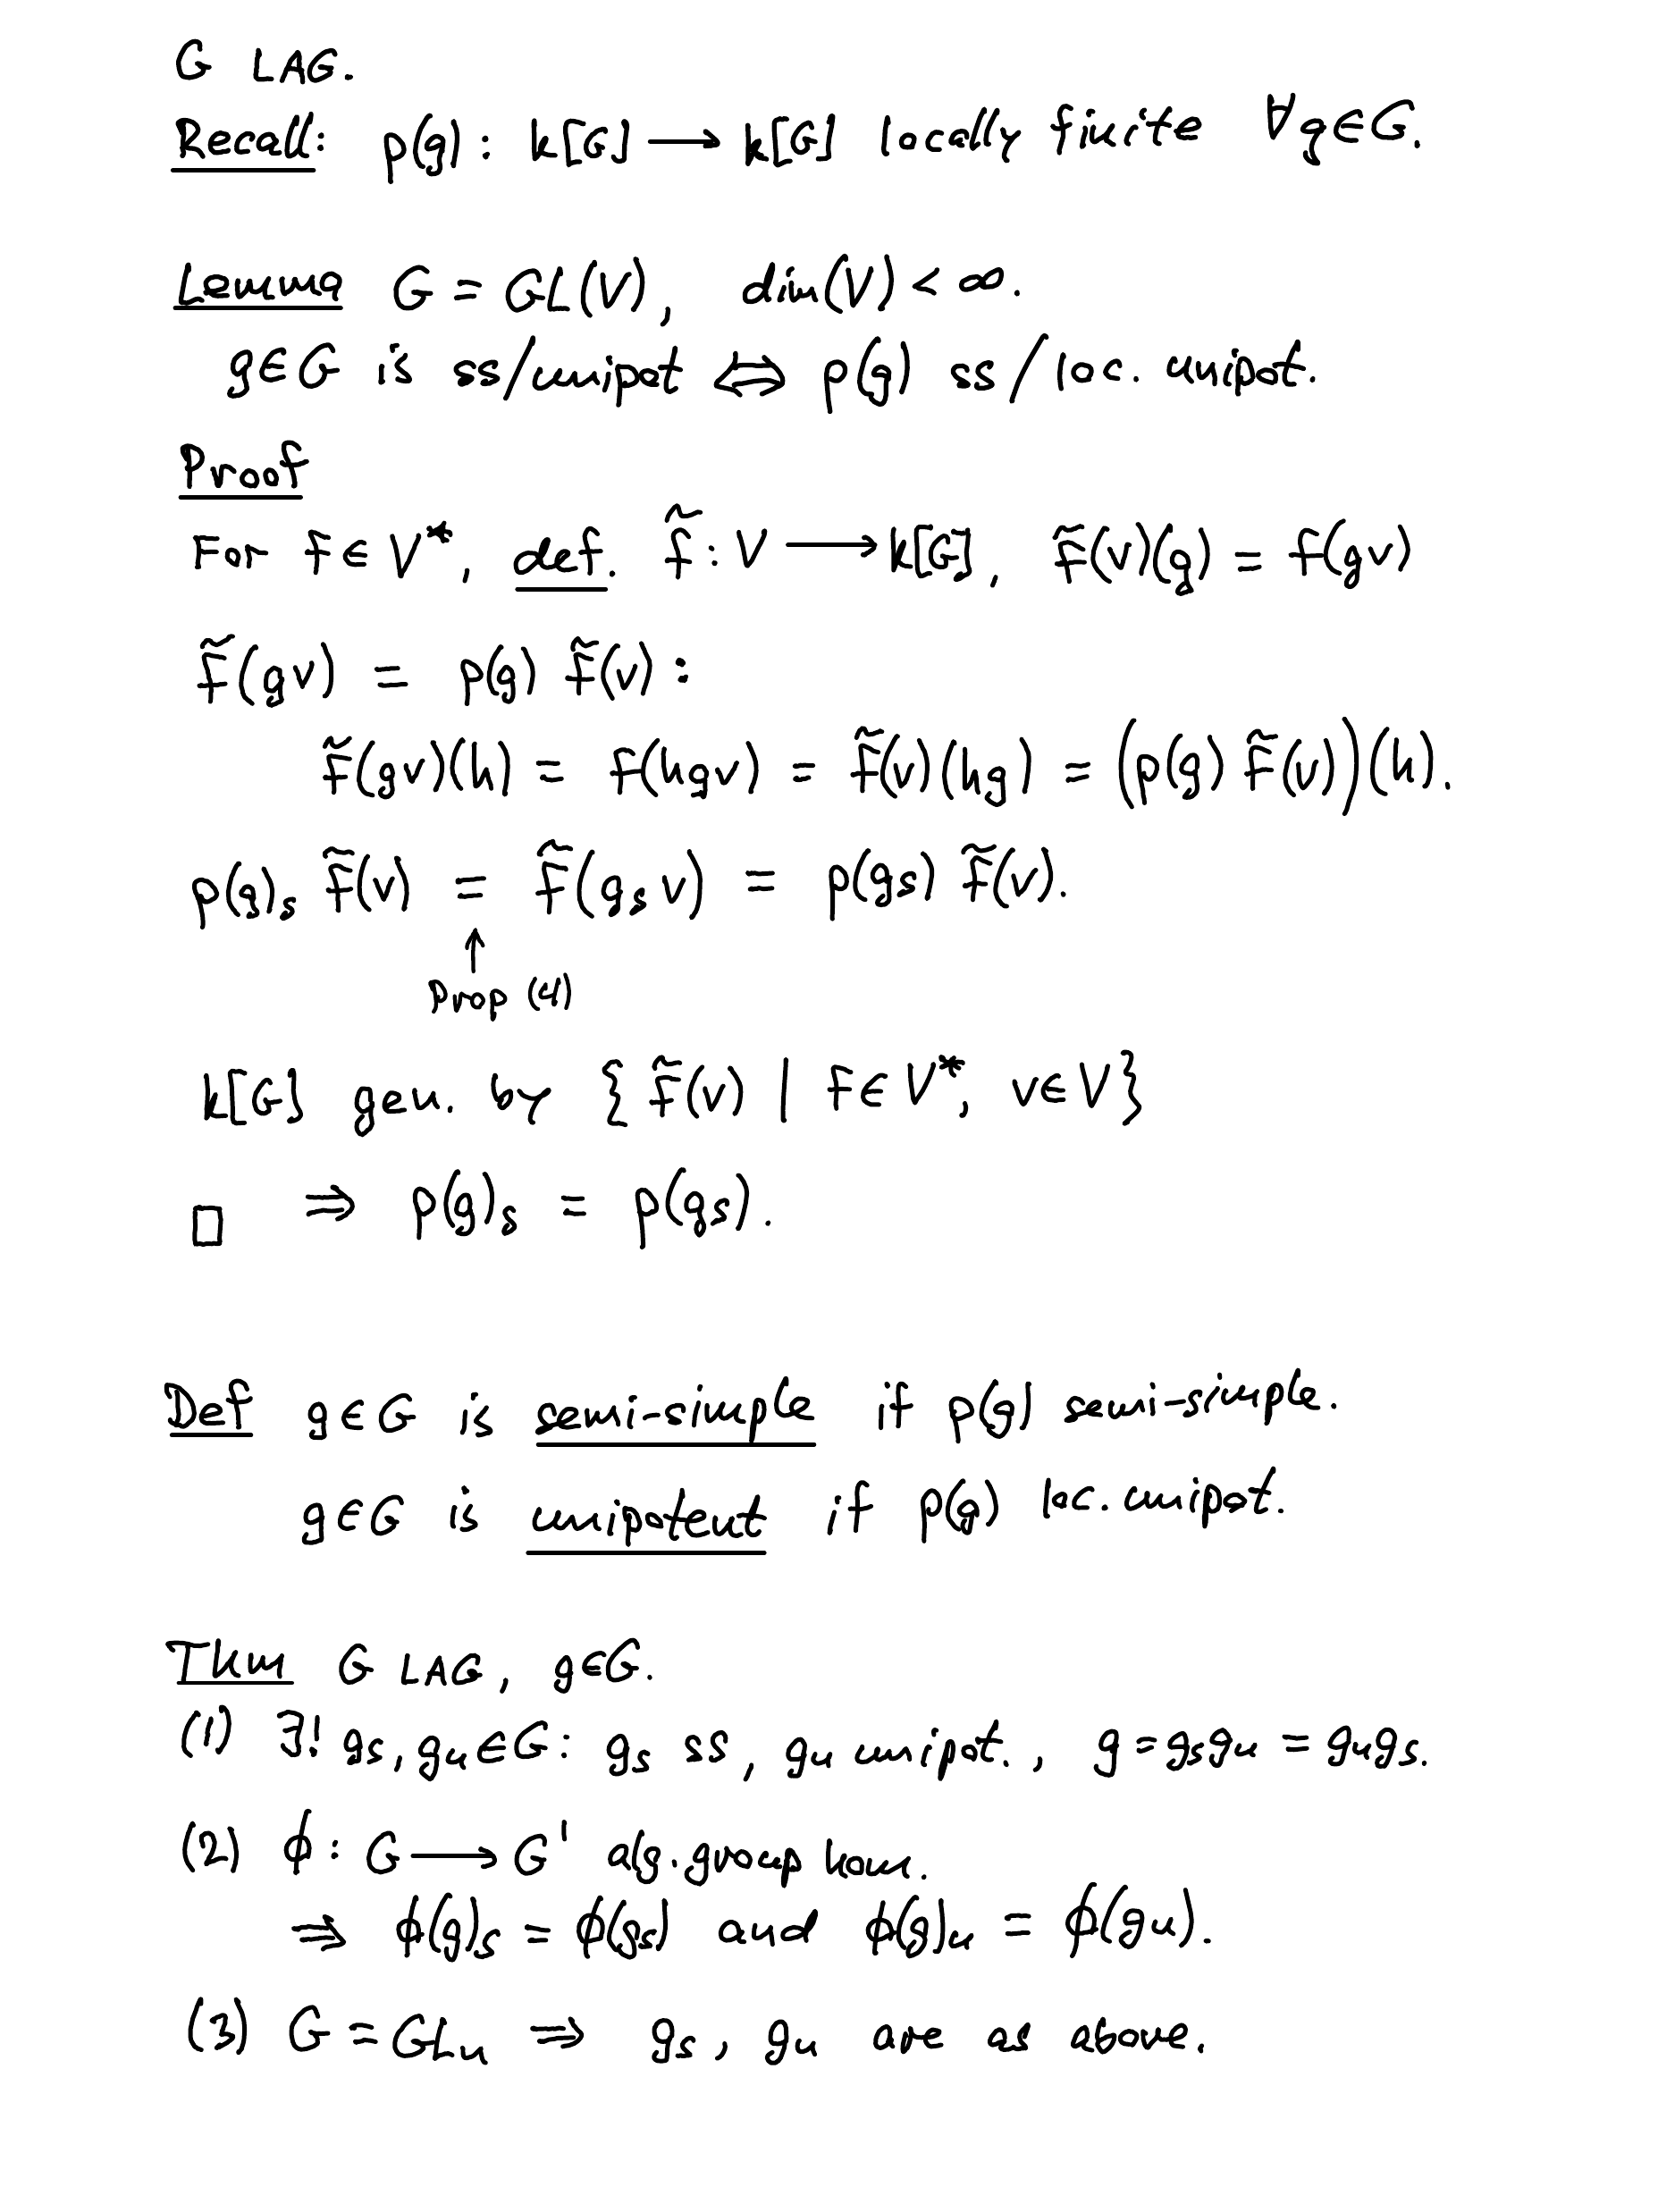 G LAG.
Recall: ρ(g): k[G] ⟶ k[G] locally finite ∀g∈G.
Lemma G = GL(V), dim(V) < ∞.
g∈G is ss/unipot ⟺ ρ(g) ss/loc. unipot.
Proof
For f∈V*, def. f̃: V ⟶ k[G], f̃(v)(g) = f(gv)
f̃(gv) = ρ(g) f̃(v):
f̃(gv)(h) = f(hgv) = f̃(v)(hg) = (ρ(g) f̃(v))(h).
ρ(g)ₛ f̃(v) = f̃(gₛ v) = ρ(gₛ) f̃(v).
↑
Prop (4)
k[G] gen. by { f̃(v) | f∈V*, v∈V}
□ ⇒ ρ(g)ₛ = ρ(gₛ).
Def g∈G is semi-simple if ρ(g) semi-simple.
g∈G is unipotent if ρ(g) loc. unipot.
Thm G LAG, g∈G.
(1) ∃! gₛ, gᵤ∈G: gₛ ss, gᵤ unipot., g = gₛgᵤ = gᵤgₛ.
(2) ϕ: G ⟶ G' alg. group hom.
⇒ ϕ(g)ₛ = ϕ(gₛ) and ϕ(g)ᵤ = ϕ(gᵤ).
(3) G = GLₙ ⇒ gₛ, gᵤ are as above.